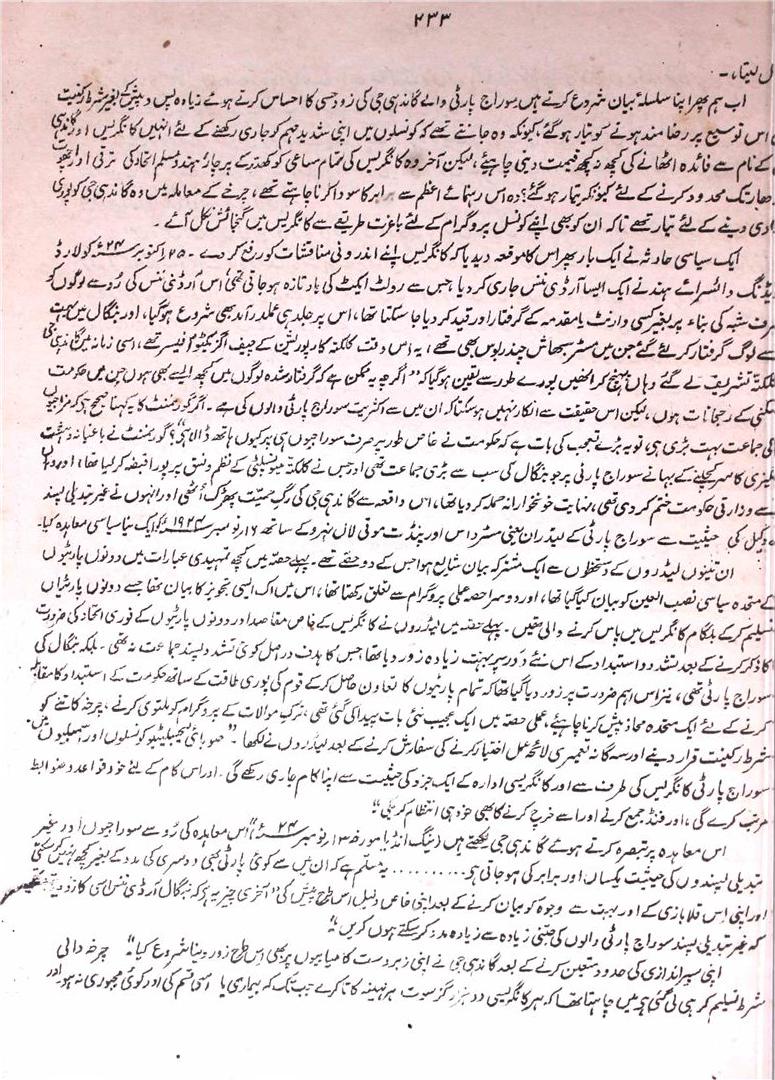 ۲۳۳
ل لیتا،۔
اب ہم پھر اپنا سلسلۂ بیان شروع کرتے ہیں سوراج پارٹی والے گاندھی جی کی زود حسی کا احساس کرتے ہوئے زیادہ پس و پیش کے بغیر شرط رکنیت
اس توسیع پر رضامند ہونے کو تیار ہوگئے، کیونکہ وہ جانتے تھے کہ کونسلوں میں اپنی شدید مہم کو جاری رکھنے کے لئے انہیں کانگریس اور گاندھی
کے نام سے فائدہ اٹھانے کی کچھ نہ کچھ قیمت دینی چاہیئے، لیکن آخر وہ کانگریس کی تمام مساعی کو کھدر کے پرچار، ہندو مسلم اتحاد کی ترقی اور اچھوت
تک محدود کرنے کے لئے کیونکر تیار ہوگئے؟ وہ اس رہنمائے اعظم سے برابر کا سودا کرنا چاہتے تھے، چرخے کے معاملہ میں وہ گاندھی جی کو پوری
دینے کے لئے تیار تھے تاکہ ان کو بھی اپنے کونسل پروگرام کے لئے باعزت طریقے سے کانگریس میں گنجائش نکل آئے۔
ایک سیاسی حادثہ نے ایک بار پھر اس کا موقعہ دیدیا کہ کانگریس اپنے اندرونی مناقشات کو رفع کر دے۔ ۲۵ اکتوبر ۲۴ء کو لارڈ
ریڈنگ وائسرائے ہند نے ایک ایسا آرڈی ننس جاری کر دیا جس سے رولٹ ایکٹ کی یاد تازہ ہو جاتی تھی اس آرڈی ننس کی رُو سے لوگوں کو
صرف شبہ کی بناء پر بغیر کسی وارنٹ یا مقدمہ کے گرفتار اور قید کر دیا جا سکتا تھا، اس پر جلد ہی عملدرآمد بھی شروع ہوگیا، اور بنگال میں بہت
سے لوگ گرفتار کر لئے گئے جن میں مسٹر سبھاش چندر بوس بھی تھے، یہ اس وقت کلکتہ کارپوریشن کے چیف اگزیکٹو آفیسر تھے، اسی زمانہ میں گاندھی جی
کلکتہ تشریف لے گئے وہاں پہنچ کر انھیں پورے طور سے یقین ہوگیا کہ ”اگرچہ یہ ممکن ہے کہ گرفتار شدہ لوگوں میں کچھ ایسے بھی ہوں جن میں حکومت
شکنی کے رجحانات ہوں، لیکن اس حقیقت سے انکار نہیں ہوسکتا کہ ان میں سے اکثریت سوراج پارٹی والوں کی ہے۔ اگر گورنمنٹ کا یہ کہنا صحیح ہے کہ مزاجیوں
کی جماعت بہت بڑی ہے، تو یہ بڑے تعجب کی بات ہے کہ حکومت نے خاص طور پر صرف سوراجیوں ہی پر کیوں ہاتھ ڈالا ہے“؟ گورنمنٹ نے باغیانہ دہشت
انگیزی کا سر کچلنے کے بہانے سوراج پارٹی پر جو بنگال کی سب سے بڑی جماعت تھی اور جس نے کلکتہ میونسپلٹی کے نظم و نسق پر پورا قبضہ کر لیا تھا، اور وہاں
سے وزارتی حکومت ختم کر دی تھی، نہایت خونخوارانہ حملہ کر دیا تھا، اس واقعہ سے گاندھی جی کی رگِ حمیت پھڑک اُٹھی اور انہوں نے غیر تبدیلی پسند
کے وکیل کی حیثیت سے سوراج پارٹی کے لیڈران یعنی مسٹر داس اور پنڈت موتی لال نہرو کے ساتھ ۶ نومبر ۱۹۲۴ء کو ایک نیا سیاسی معاہدہ کیا۔
ان تینوں لیڈروں کے دستخطوں سے ایک مشترکہ بیان شایع ہوا جس کے دو حصے تھے۔ پہلے حصہ میں کچھ تمہیدی عبارات میں دونوں پارٹیوں
کے متحدہ سیاسی نصب العین کو بیان کیا گیا تھا، اور دوسرا حصہ عملی پروگرام سے تعلق رکھتا تھا، اس میں اک ایسی تجویز کا بیان تھا جسے دونوں پارٹیاں
تسلیم کر کے بلگام کانگریس میں پاس کرنے والی تھیں۔ پہلے حصہ میں لیڈروں نے کانگریس کے خاص مقاصد اور دونوں پارٹیوں کے فوری اتحاد کی ضرورت
کا ذکر کرنے کے بعد تشدد و استبداد کے اس نئے دَور پر بہت زیادہ زور دیا تھا جس کا ہدف دراصل کوئی تشدد پسند جماعت نہ تھی۔ بلکہ بنگال کی
سوراج پارٹی تھی، نیز اس اہم ضرورت پر زور دیا گیا تھا کہ تمام پارٹیوں کا تعاون حاصل کر کے قوم کی پوری طاقت کے ساتھ حکومت کے استبداد کا مقابلہ
کرنے کے لئے ایک متحدہ محاذ پیش کرنا چاہیئے، عملی حصہ میں ایک عجیب نئی بات پیدا کی گئی تھی، ترک موالات کے پروگرام کو ملتوی کرنے، چرخہ کاتنے کو
شرط رکنیت قرار دینے اور سہ گانہ تعمیری لائحہ عمل اختیار کرنے کی سفارش کرنے کے بعد لیڈروں نے لکھا۔ ”صوبائی لیجیسلیٹیو کونسلوں اور اسمبلیوں میں
سوراج پارٹی کانگریس کی طرف سے اور کانگریسی ادارہ کے ایک جزو کی حیثیت سے اپنا کام جاری رکھے گی۔ اور اس کام کے لئے خود قواعد و ضوابط
مرتب کرے گی، اور فنڈ جمع کرنے اور اسے خرچ کرنے کا بھی خود ہی انتظام کریگی“
اس معاہدہ پر تبصرہ کرتے ہوئے گاندھی جی لکھتے ہیں (ینگ انڈیا مورخہ ۱۳ نومبر ۲۴ء) ”اس معاہدہ کی رُو سے سوراجیوں اور غیر
تبدیلی پسندوں کی حیثیت یکساں اور برابر کی ہو جاتی ہے.......... یہ مسلم ہے کہ ان میں سے کوئی پارٹی کسی دوسری کی مدد کے بغیر کچھ نہیں کر سکتی“
اور اپنی اس قلابازی کے اور بہت سے وجوہ کو بیان کرنے کے بعد اپنی خاص دلیل اس طرح پیش کی ”آخری چیز یہ ہے کہ بنگال آرڈی ننس اسی کا زور دیتا ہے
کہ غیر تبدیلی پسند سوراج پارٹی والوں کی جتنی زیادہ سے زیادہ مدد کر سکتے ہوں کریں“
اپنی سپر اندازی کی حدود متعین کرنے کے بعد گاندھی جی نے اپنی زبردست کامیابیوں پر بھی اس طرح زور دینا شروع کیا ”چرخہ والی
شرط تسلیم کر ہی لی گئی ہے میں چاہتا تھا کہ ہر کانگریسی دو ہزار گز سوت ہر مہینہ کاتا کرے جب تک کہ بیماری یا اسی قسم کی اور کوئی مجبوری نہ ہو اور